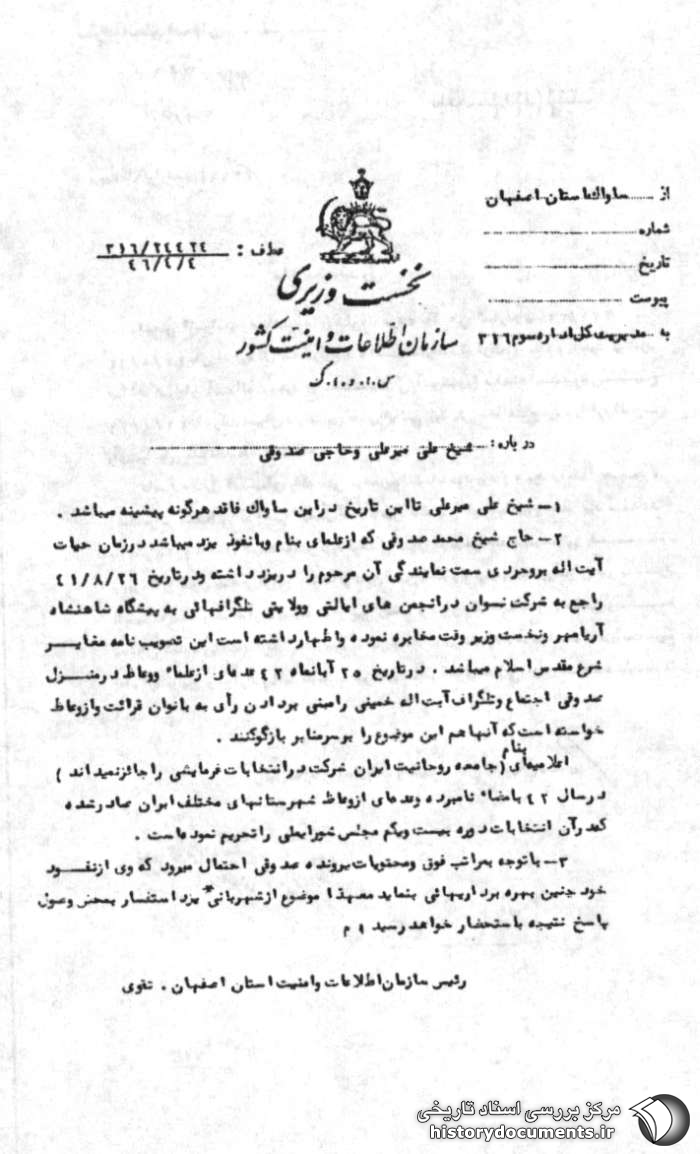 از ساواك استان اصفهان
شماره
تاریخ
پیوست
به مدیریت کل اداره سوم ۳۱۶
عطف : ۳۱۶/۲٤٤۲٤
٤٦/٤/٤
نخست وزیری
سازمان اطلاعات و امنیت کشور
س.ا.و.ا.ک
درباره : شیخ علی میرعلی وحاجی صدوقی
۱– شیخ علی میرعلی تااین تاریخ دراین ساواك فاقد هرگونه پیشینه میباشد .
۲– حاج شیخ محمد صدوقی که ازعلمای بنام وبانفوذ یزد میباشد درزمان حیات
آیت اله بروجردی سمت نمایندگی آن مرحوم را دریزد داشته ودرتاریخ ٤۱/۸/۲٦
راجع به شرکت نسوان درانجمن های ایالتی وولایتی تلگرافهائی به پیشگاه شاهنشاه
آریامهر ونخست وزیر وقت مخابره نموده واظهارداشته است این تصویب نامه مغایــر
شرع مقدس اسلام میباشد . درتاریخ ۲۵ آبانماه ٤۲ عده‌ای ازعلماء ووعاظ درمنــزل
صدوقی اجتماع وتلگراف آیت اله خمینی رامبنی بردادن رأی به بانوان قرائت وازوعاظ
خواسته است که آنها هم این موضوع را برسرمنابر بازگوکنند .
اعلامیه‌ای بنام (جامعه روحانیت ایران شرکت درانتخابات فرمایشی را جائزنمیداند )
درسال ٤۲ باامضاء نامبرده وعده‌ای ازوعاظ شهرستانهای مختلف ایران صادرشده
که‌درآن انتخابات دوره بیست ویکم مجلس شورایملی را تحریم نموده‌است .
۳– باتوجه بمراتب فوق ومحتویات پرونده صدوقی احتمال میرود که وی ازنفــود
خود چنین بهره برداریهائی بنماید معهذا موضوع ازشهربانی* یزد استفسار بمحض وصول
پاسخ نتیجه باستحضار خواهد رسید م
رئیس سازمان اطلاعات وامنیت استان اصفهان . تقوی
مرکز بررسی اسناد تاریخی
historydocuments.ir